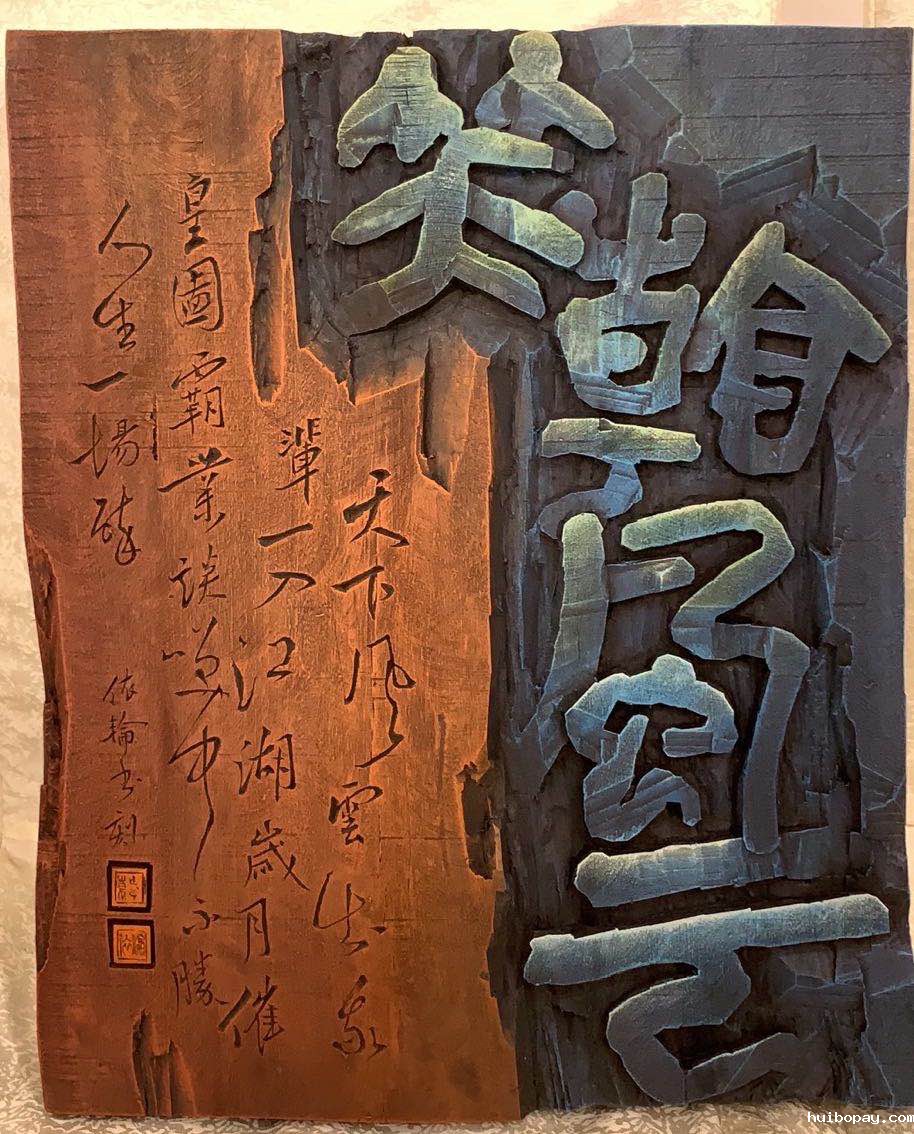 笑看風云
天下風雲出我
輩一入江湖歲月催
皇圖霸業談笑中不勝
人生一場醉
依輪書刻
huibopay.com